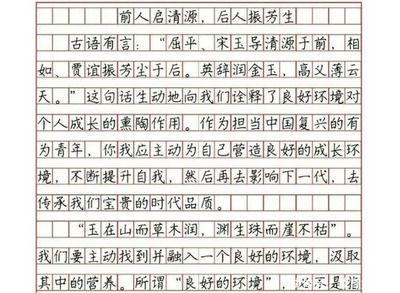 前人启清源，后人振芳生
古语有言：“屈平、宋玉导清源于前，相
如、贾谊振芳尘于后。英辞润金玉，高义薄云
天。”这句话生动地向我们诠释了良好环境对
个人成长的熏陶作用。作为担当中国复兴的有
为青年，你我应主动为自己营造良好的成长环
境，不断提升自我，然后再去影响下一代，去
传承我们宝贵的时代品质。
“玉在山而草木润，渊生珠而崖不枯”。
我们要主动找到并融入一个良好的环境，汲取
其中的营养。所谓“良好的环境”，不是指